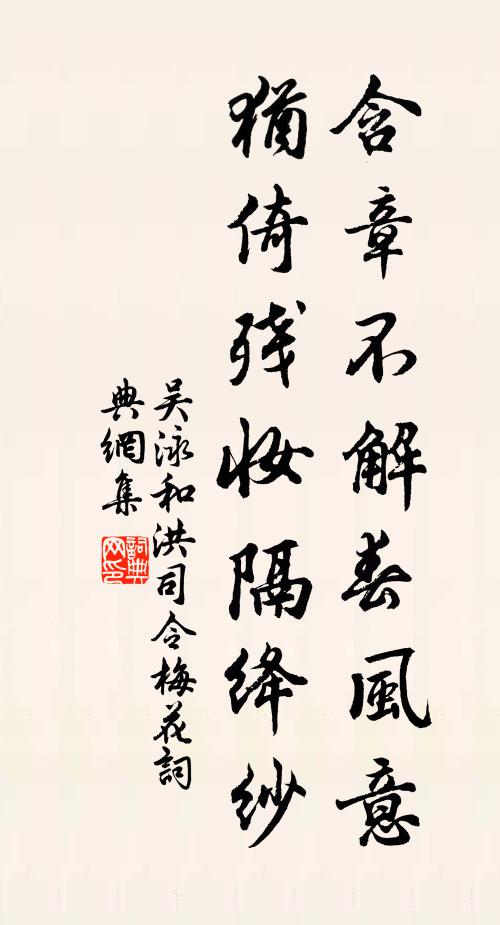 含章不解春風意
猶倚残妝隔绛纱
吴泳和洪司令梅花詞
典網集
詞典网印